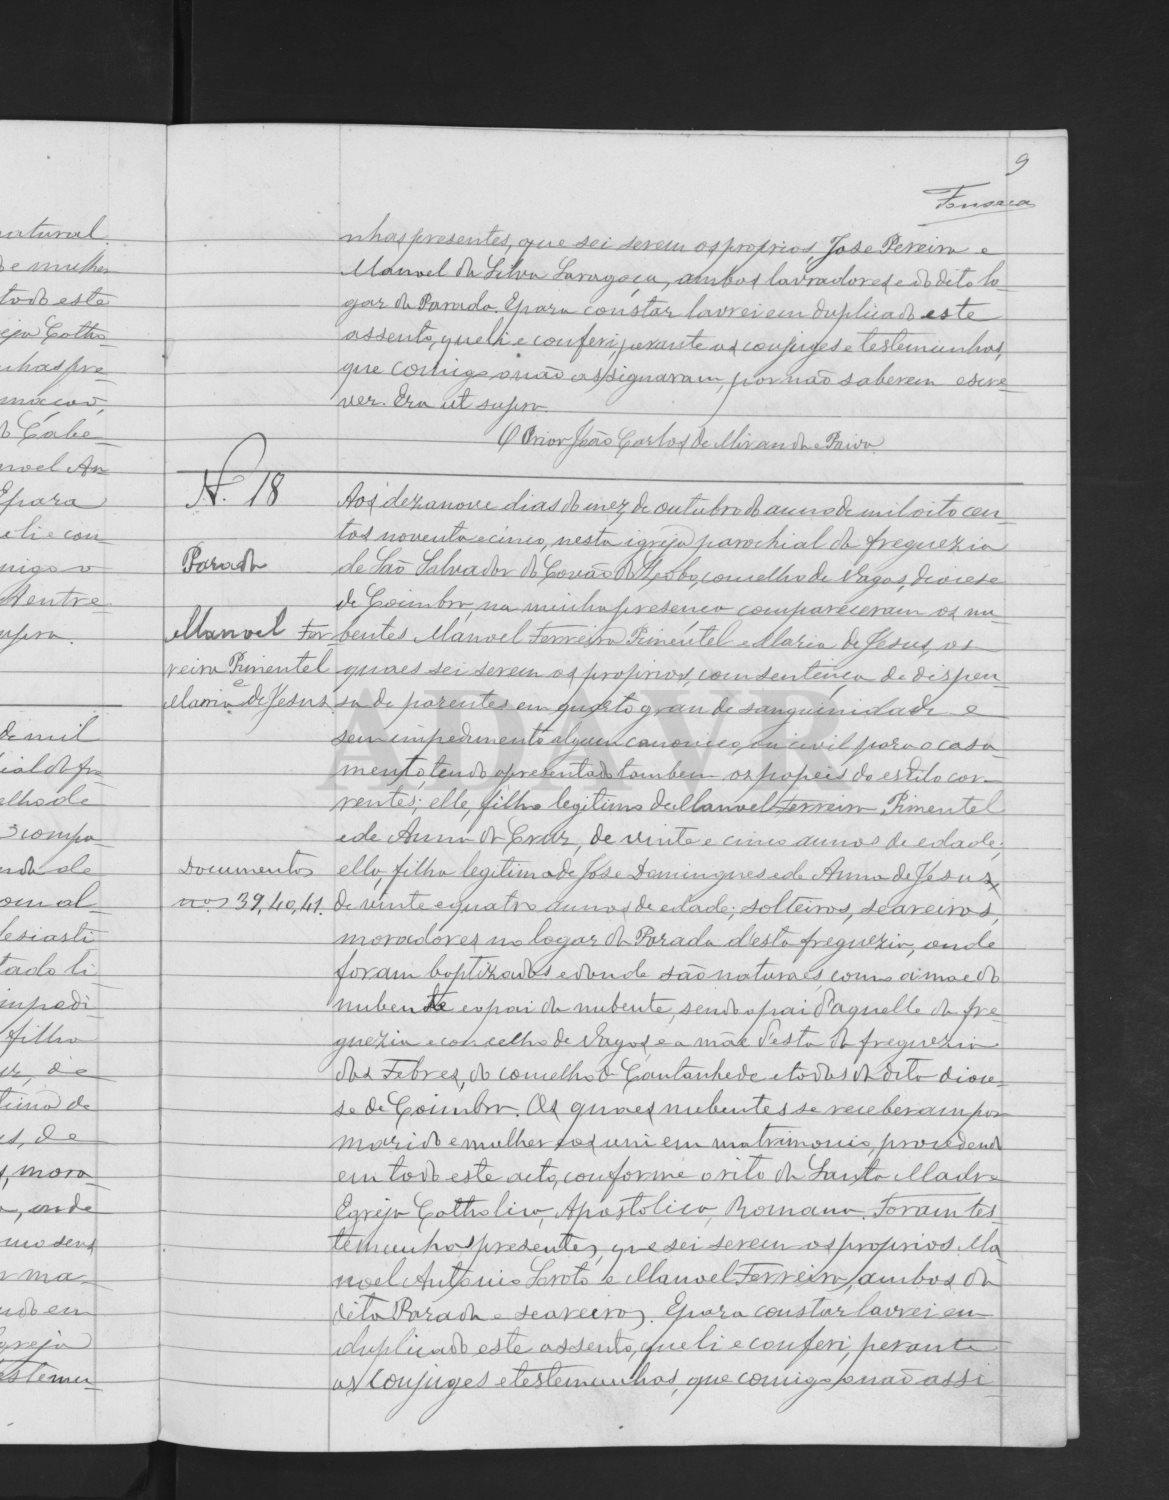 9
Fonseca
natural
de e mulher
todo este
reja Catho-
nhas pre-
mação,
do Cabe-
noel An-
E para
e li e con-
migo o
entre
supra.
de mil
ial da fre
elho de
compa
om al-
lesiasti
tado li
impedi-
filho
uz, de
tima de
us, de
s, mora-
a, onde
mo seus
r ma-
ndo em
greja
estemu-
nhas presentes, que sei serem os proprios, José Pereira e
Manoel da Silva Saragoça, ambos lavradores e do dito lo-
gar da Parada. E para constar lavrei em duplicado este
assento, que li e conferi, perante os conjuges e testemunhas,
que comigo o não assignaram, por não saberem escre-
ver. Era ut supra.
O Prior João Carlos de Miranda e Paiva
N. 18
Parada
Manoel Fer-
reira Pimentel
e
Maria de Jesus
Documentos
nos 39, 40, 41.
Aos dezanove dias do mez de outubro do anno de mil oito cen-
tos noventa e cinco, nesta igreja parochial da freguezia
de São Salvador do Covão do Lobo, concelho de Vagos, diocese
de Coimbra, na minha presença compareceram os nu-
bentes Manoel Ferreira Pimentel e Maria de Jesus, os
quaes sei serem os proprios, com sentença de dispen-
sa de parentes em quarto grau de sanguinidade e
sem impedimento algum canonico, ou civil, para o casa-
mento, tendo apresentado tambem os papeis do estilo cor-
rentes; elle, filho legitimo de Manoel Ferreira Pimentel
e de Anna da Cruz, de vinte e cinco annos de edade;
ella, filha legitima de José Domingues e de Anna de Jesus,
de vinte e quatro annos de edade; solteiros, seareiros,
moradores no logar da Parada d'esta freguezia, onde
foram baptizados e donde são naturaes, como a mãe do
nubente e o pai da nubente, sendo o pai d'aquelle da fre-
guezia e concelho de Vagos, e a mãe d'esta da freguezia
das Febres, do concelho de Cantanhede e todos da dita dioce-
se de Coimbra. Os quaes nubentes se receberam por
marido e mulher e os uni em matrimonio, procedendo
em todo este acto, conforme o rito da Santa Madre
Egreja Catholica, Apostolica, Romana. Foram tes-
temunhas presentes, que sei serem os proprios Ma-
noel Antonio Seroto e Manoel Ferreira, ambos da
dita Parada e seareiros. E para constar lavrei em
duplicado este assento, que li e conferi, perante
os conjuges e testemunhas, que comigo o não assi-
ADAVR